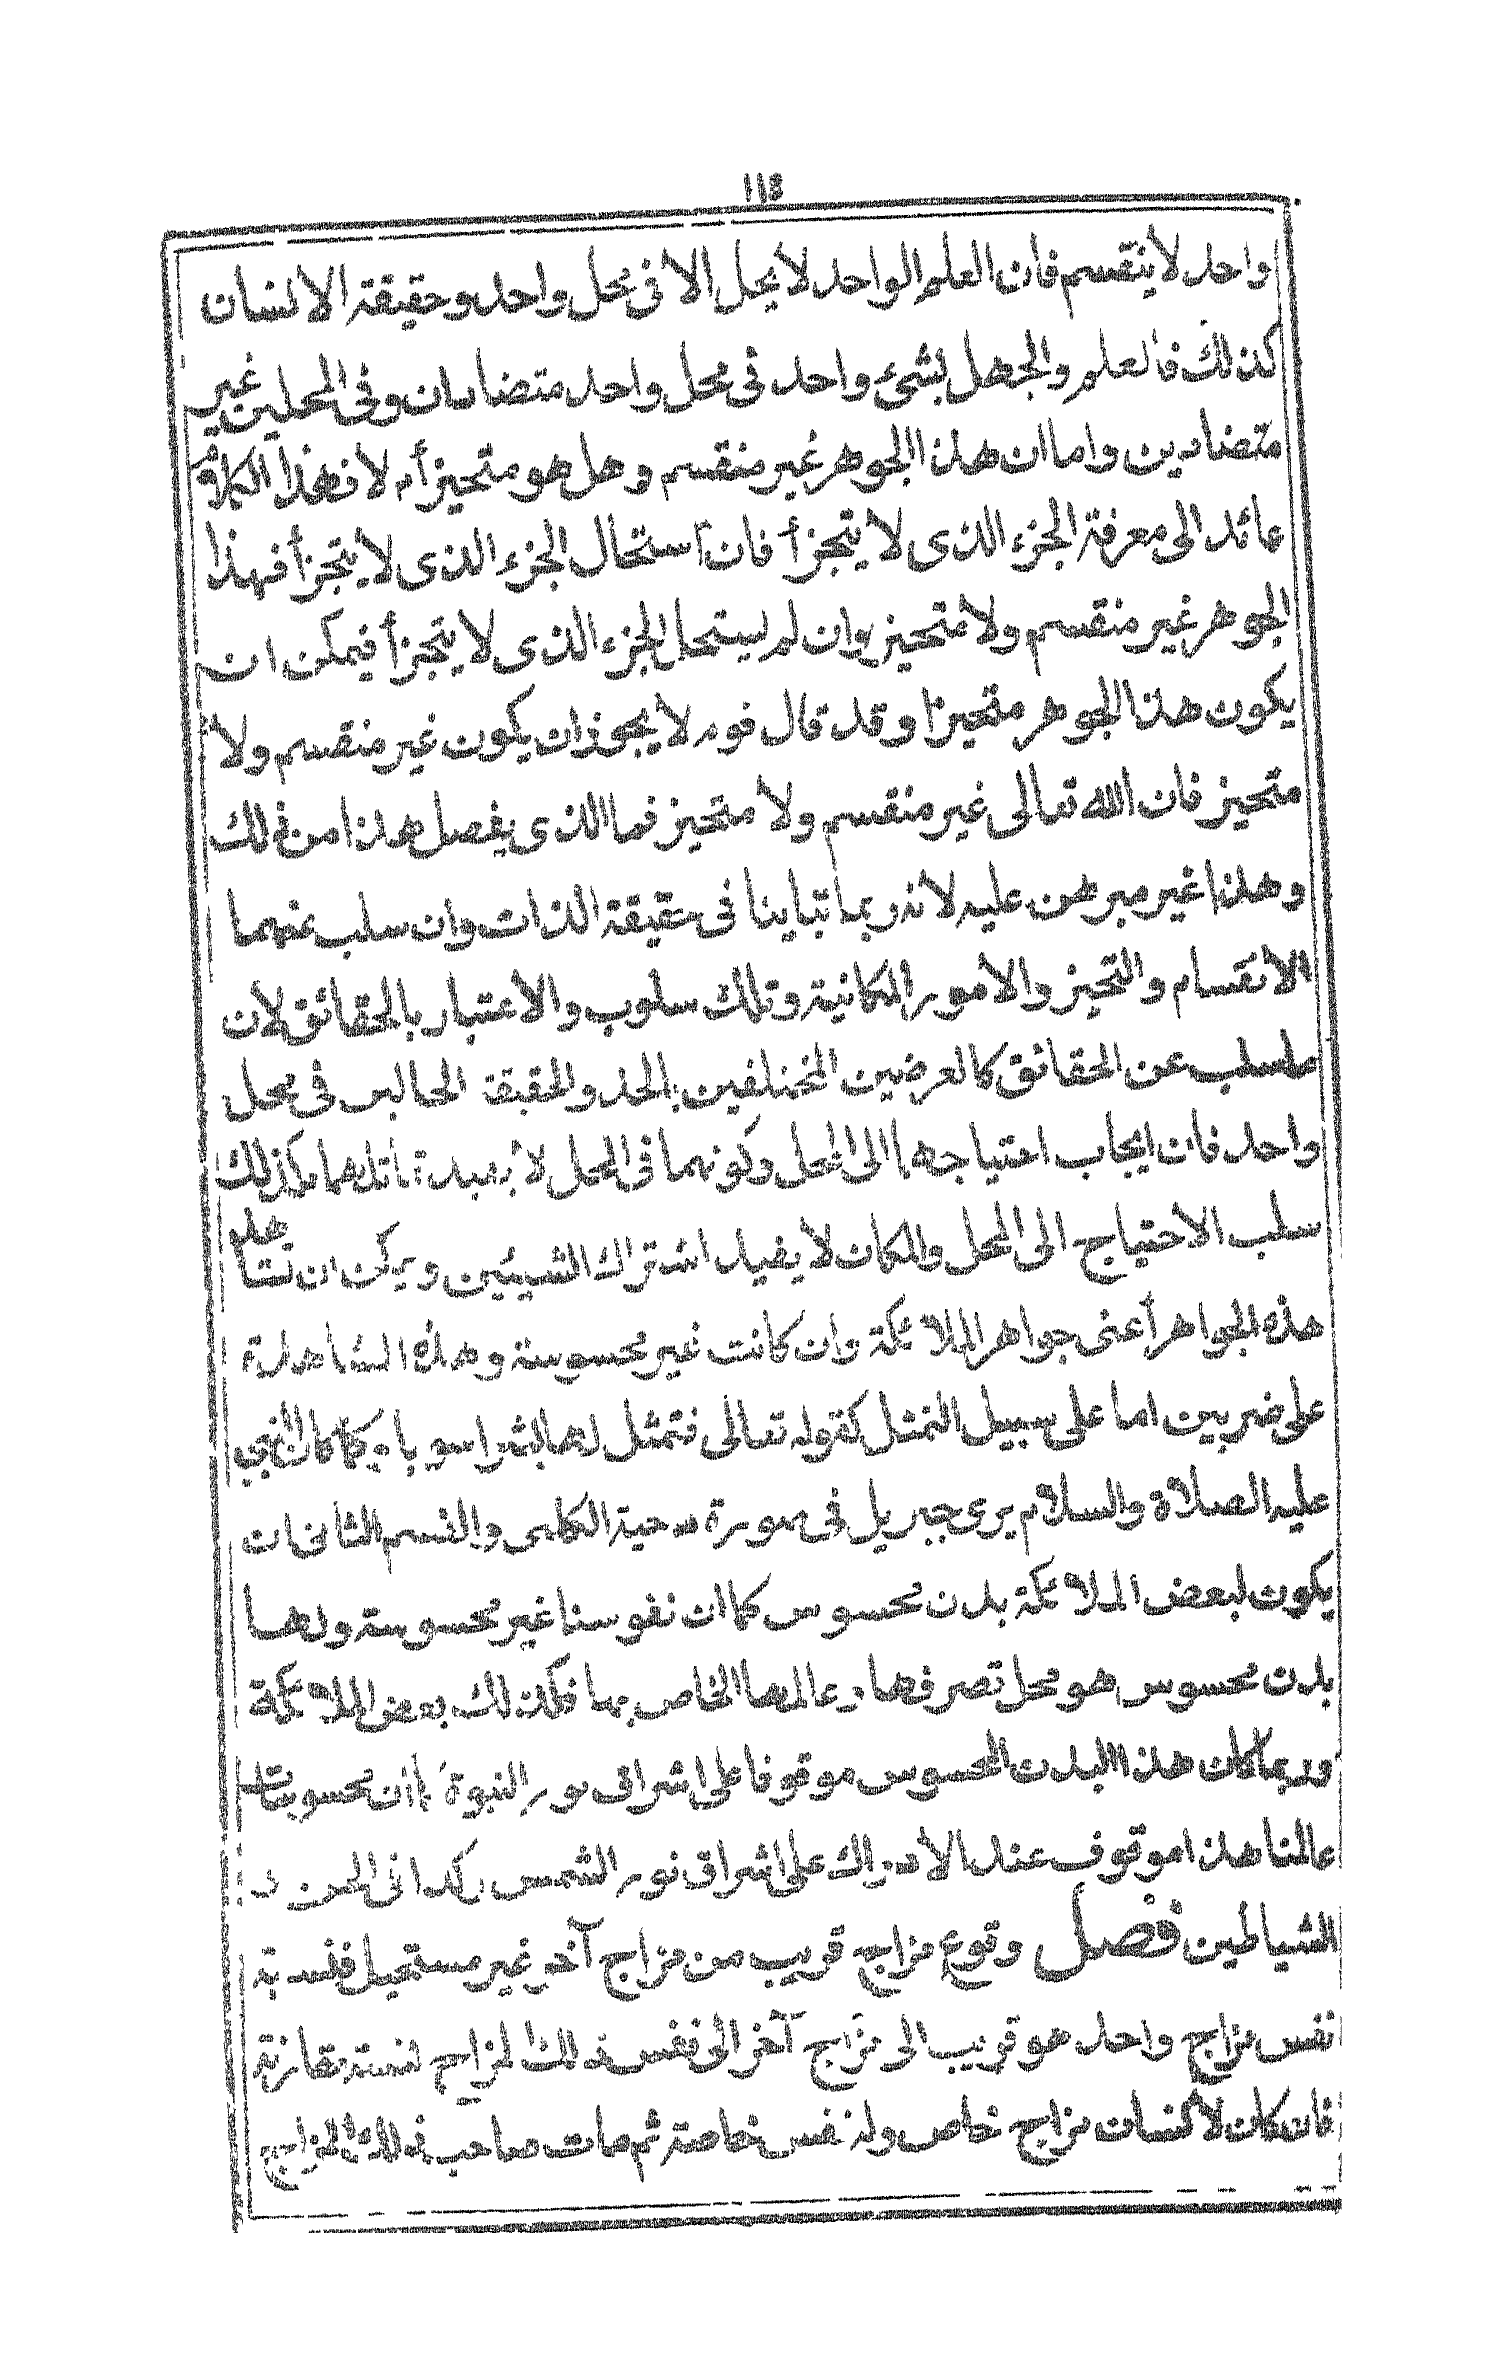 ١١٥
واحد لا ينقسم فان العلم الواحد لا يحل الا فى محل واحد وحقيقة الانسان
كذلك فالعلم والجهل بشىء واحد فى محل واحد متضادان وفى المحلين غير
متضادين واما ان هذا الجوهر غير منقسم وهل هو متحيز أم لا فهذا الكلام
عائد الى معرفة الجزء الذى لا يتجزأ فان استحال الجزء الذى لا يتجزأ فهذا
الجوهر غير منقسم ولا متحيز وان لم يستحل الجزء الذى لا يتجزأ فيمكن ان
يكون هذا الجوهر متحيزا وقد قال قوم لا يجوز ان يكون غير منقسم ولا
متحيز فان الله تعالى غير منقسم ولا متحيز فما الذى يفصل هذا من ذلك
وهذا غير مبرهن عليه لانه ربما تباينا فى حقيقة الذات وان سلب عنهما
الانقسام والتحيز والامور المكانية وتلك سلوب والاعتبار بالحقائق لان
ما سلب عن الحقائق كالعرضين المختلفين بالحد والحقيقة الحالين فى محل
واحد فان ايجاب احتياجهما الى المحل وكونهما فى المحل لا يفيد تماثلهما وكذلك
سلب الاحتياج الى المحل والمكان لا يفيد اشتراك الشيئين ويمكن ان تشاهد
هذه الجواهر أعنى جواهر الملائكة وان كانت غير محسوسة وهذه المشاهدة
على ضربين اما على سبيل التمثل كقوله تعالى فتمثل لها بشرا سويا وكما كان النبى
عليه الصلاة والسلام يرى جبريل فى صورة دحية الكلبى والقسم الثانى ان
يكون لبعض الملائكة بدن محسوس كما ان نفوسنا غير محسوسة ولها
بدن محسوس هو محل تصرفها وعالمها الخاص بها فكذلك بعض الملائكة
وربما كان هذا البدن المحسوس موقوفا على اشراق نور النبوة كما أن محسوسات
عالمنا هذا موقوف عند الادراك على اشراق نور الشمس وكذا فى الجن و
الشياطين فصل وقوع مزاج قريب من مزاج آخر غير مستحيل فنسبة
نفس مزاج واحد هو قريب الى مزاج آخر الى نفس ذلك المزاج نسبة مقارنة
فان كان لانسان مزاج خاص وله نفس خاصة ثم مات صاحب ذلك المزاج